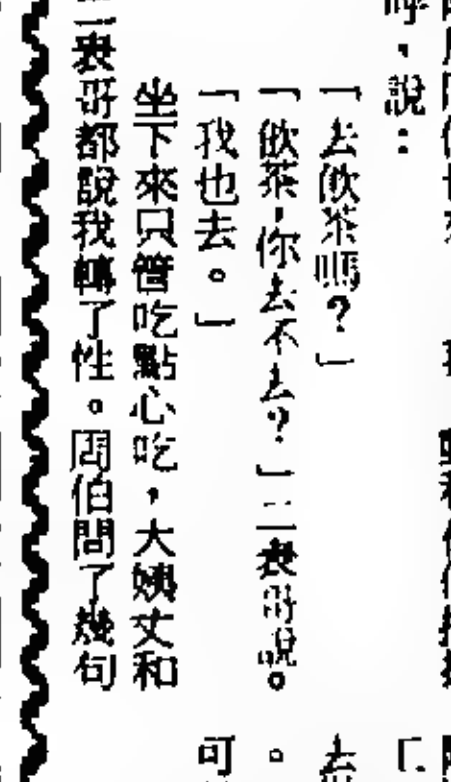 呼，說：
「去飲茶嗎？」
「飲茶，你去不去？」二表哥說。
「我也去。」
坐下來只管吃點心吃，大姨丈和
二表哥都說我轉了性。周伯問了幾句
「
去
。
可